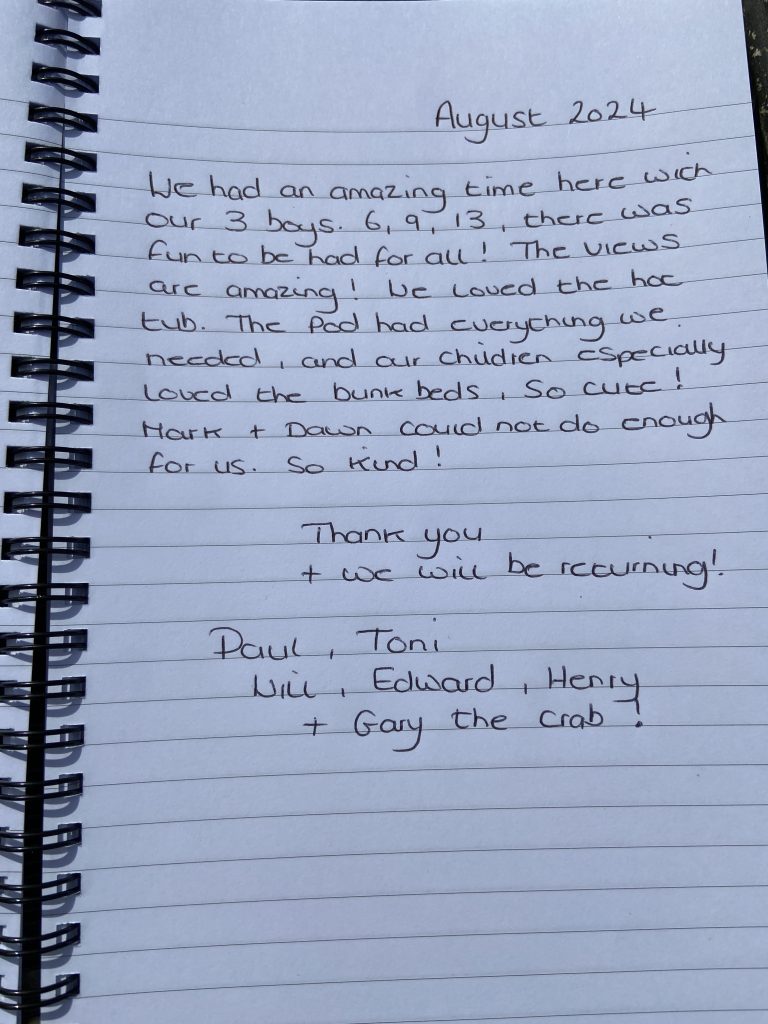 August 2024
We had an amazing time here with
our 3 boys. 6, 9, 13, there was
fun to be had for all! The views
are amazing! We loved the hot
tub. The Pod had everything we
needed, and our children especially
loved the bunk beds, so cute!
Mark + Dawn could not do enough
for us. So kind!
Thank you
+ we will be returning!
Paul, Toni
Will, Edward, Henry
+ Gary the crab!